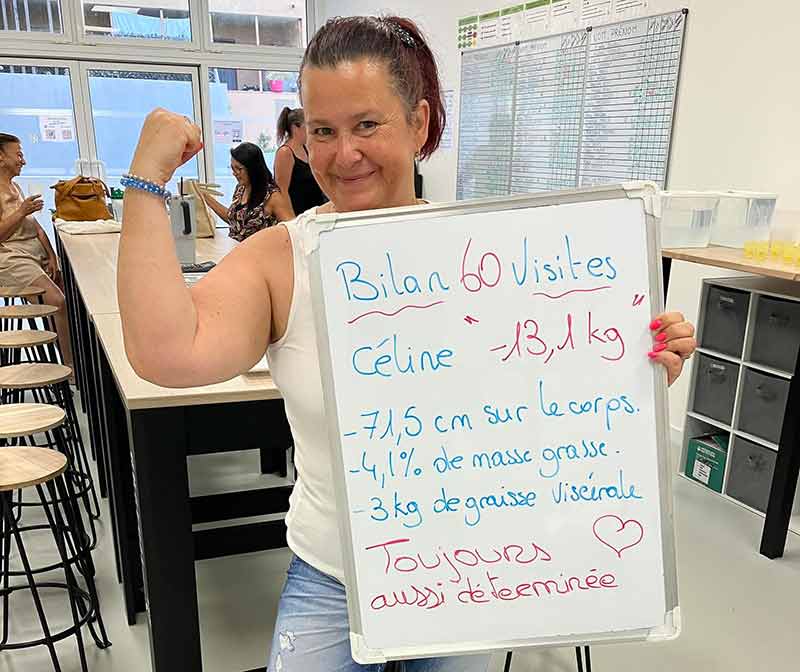 NOM PRÉNOM
Bilan 60 Visites
Céline "-13,1 kg"
-71,5 cm sur le corps.
-4,1% de masse grasse.
-3 kg de graisse viscérale
Toujours
aussi déterminée